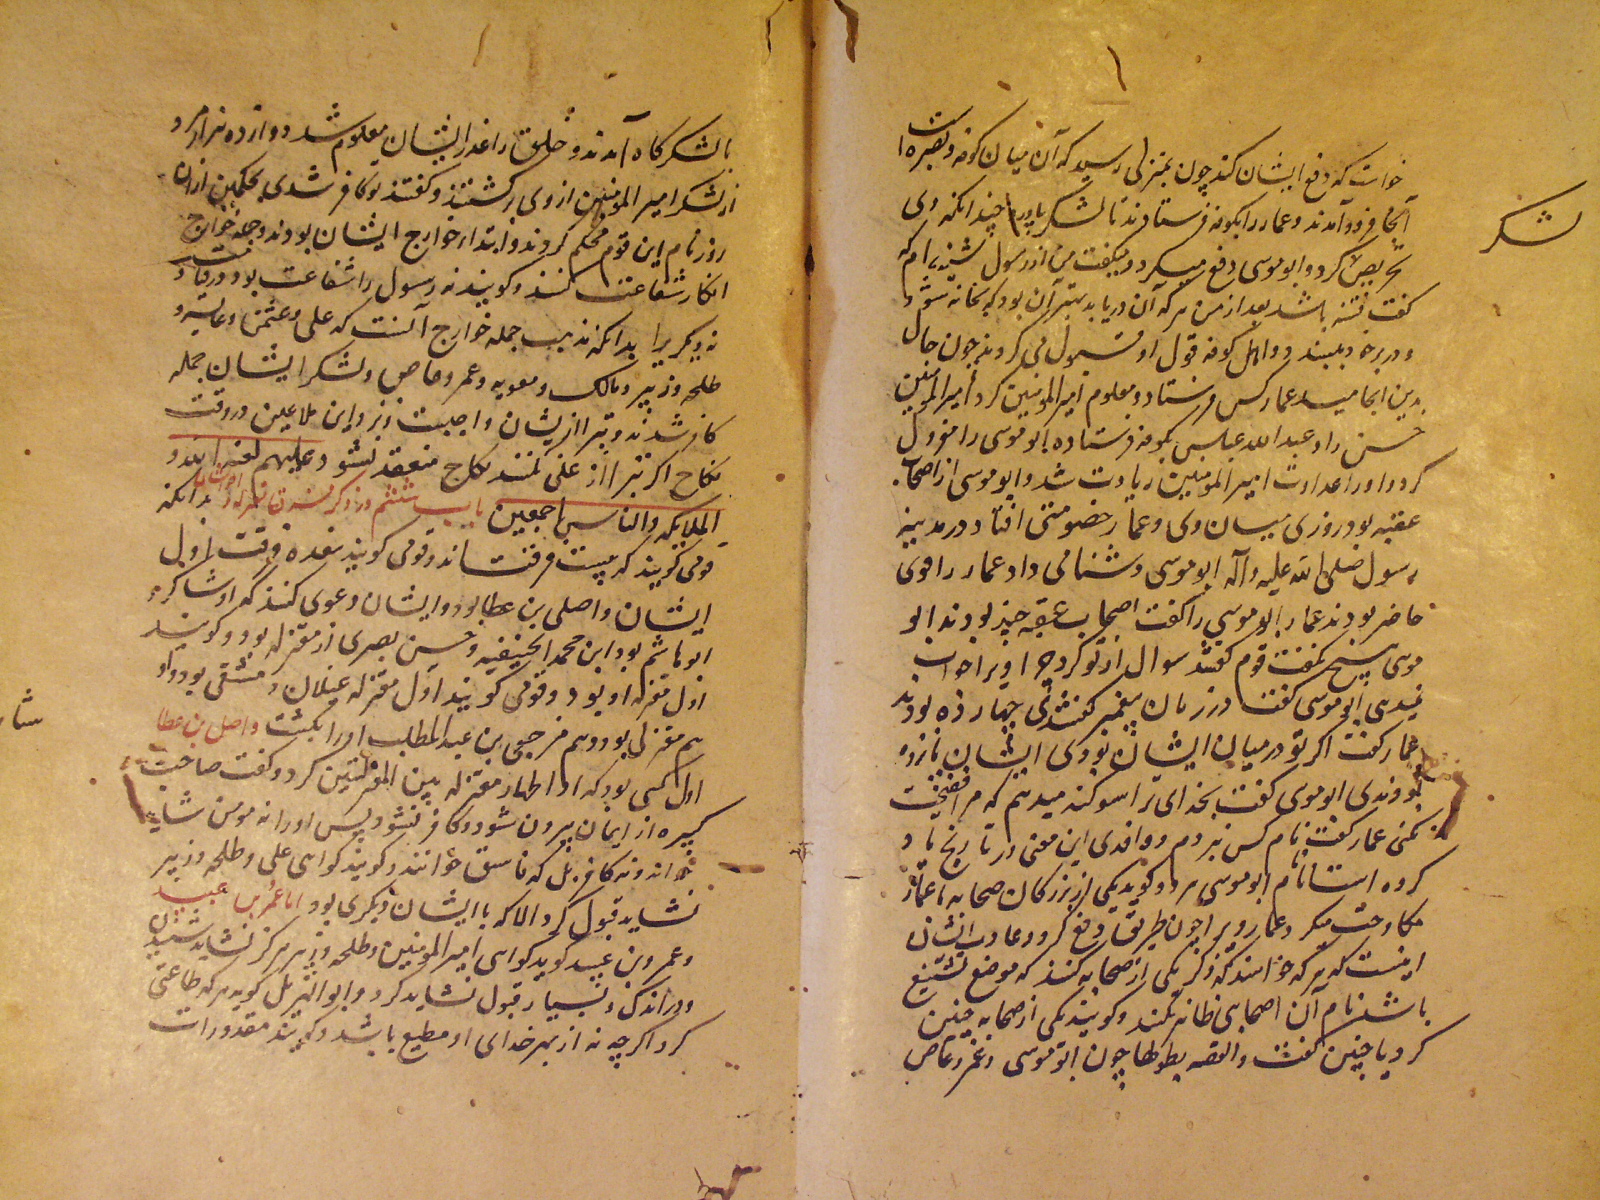 خواست که دفع ایشان کند چون بمنزلی رسید که آن میان کوفه و بصره است
آنجا فرود آمدند و عمار را بکوفه فرستادند تا لشکر بیاورد چندانکه وی
لشکر
تحریص کرد و ابو موسی دفع میکرد و میکفت من از رسول شنیده ام که
کفت فتنه باشد بعد از من هر که آن دریابد بهتر آن بود که بخانه شود
و در بر خود ببندد و اهل کوفه قول او قبول می کردند چون حال
بدین انجا رسید عمار کس فرستاد و معلوم امیر المومنین کرد امیر المومنین
حسن را و عبد الله عباس بکوفه فرستاد و ابو موسی را معزول
کرد و او را عداوت امیر المومنین زیادت شد و ابو موسی از اصحاب
عقبه بود روزی میان وی و عمار خصومتی افتاد در مدینه
رسول صلی الله علیه و آله ابو موسی دشنامی داد عمار را قومی
حاضر بودند عمار ابو موسی را کفت اصحاب عقبه چند بودند ابو
موسی هیچ نکفت قوم کفتند سوال از تو کرد چرا ویرا جواب
نمیدهی ابو موسی کفت در زمان پیغمبر کفتندی چهارده بودند
عمار کفت اکر تو در میان ایشان بودی ایشان پانزده
بودندی ابو موسی کفت بخدای ترا سوکند میدهم که مرا فضیحت
نکنی عمار کفت نام کس نبردم و واقدی این معنی در تاریخ یاد
کرده است نام ابو موسی نبرد و کوید یکی از بزرکان صحابه با عمار
مکاوحت میکرد و عمار ویرا چون طریق دفع کرد و عادت ایشان
اینست که هر که خواستند که ذکر یکی از صحابه کنند که موضع تشنیع
باشد نام آن اصحابی ظاهر نکنند و کویند یکی از صحابه چنین
کرد یا چنین کفت و القصه بطولها چون ابو موسی و عمرو عاص
بالشکرکاه آمدند و خلق را غدر ایشان معلوم شد دوازده هزار مرد
از لشکر امیر المومنین از وی برکشتند و کفتند تو کافر شدی بحکمین از آن
روز نام این قوم محکم کردند و ابتداء خوارج ایشان بودند و جمله خوارج
انکار شفاعت کنند و کویند نه رسول را شفاعت بود در قیامت
نه دیکریرا بدانکه مذهب جمله خوارج آنست که علی و عثمان و عایشه و
طلحه و زبیر و مالک و معویه و عمرو عاص و لشکر ایشان جمله
کافر شدند و تبرا از ایشان واجبست و نزد این ملاعین در وقت
نکاح اکر تبرا از علی نکنند نکاح منعقد نشود علیهم لعنة الله و
الملایکه والناس اجمعین باب ششم در ذکر فرق معتزله و احوال ایشان بدانکه
قومی کویند که بیست فرقت اند و قومی کویند هفده فرقت اول
ایشان واصلی بن عطا بود و ایشان دعوی کنند که او شاکرد
ابو هاشم بود ابن محمد الحنیفیه و حسن بصری از معتزله بود و کویند
اول معتزله او بود و قومی کویند اول معتزله غیلان دمشقی بود و او
هم معتزلی بود و هم مرجی بن عبد المطلب او را بکشت واصل بن عطا
اول کسی بود که او اظهار معتزله بین المنزلتین کرد و کفت صاحب
کبیره از ایمان بیرون شود و کافر نشود پس او را نه مومن شاید
خواند و نه کافر بل که فاسق خوانند و کویند کواهی علی و طلحه و زبیر
نشاید قبول کرد الا که با ایشان دیکری بود اما عمرو بن عبید
و عمرو بن عبید کوید کواهی امیر المومنین و طلحه و زبیر هرکز نشاید شنیدن
و در اندک و بسیار قبول نشاید کرد و ابو الهذیل کوید هر که طاعتی
کرد اکر چه نه از بهر خدای او مطیع باشد و کویند مقدورات